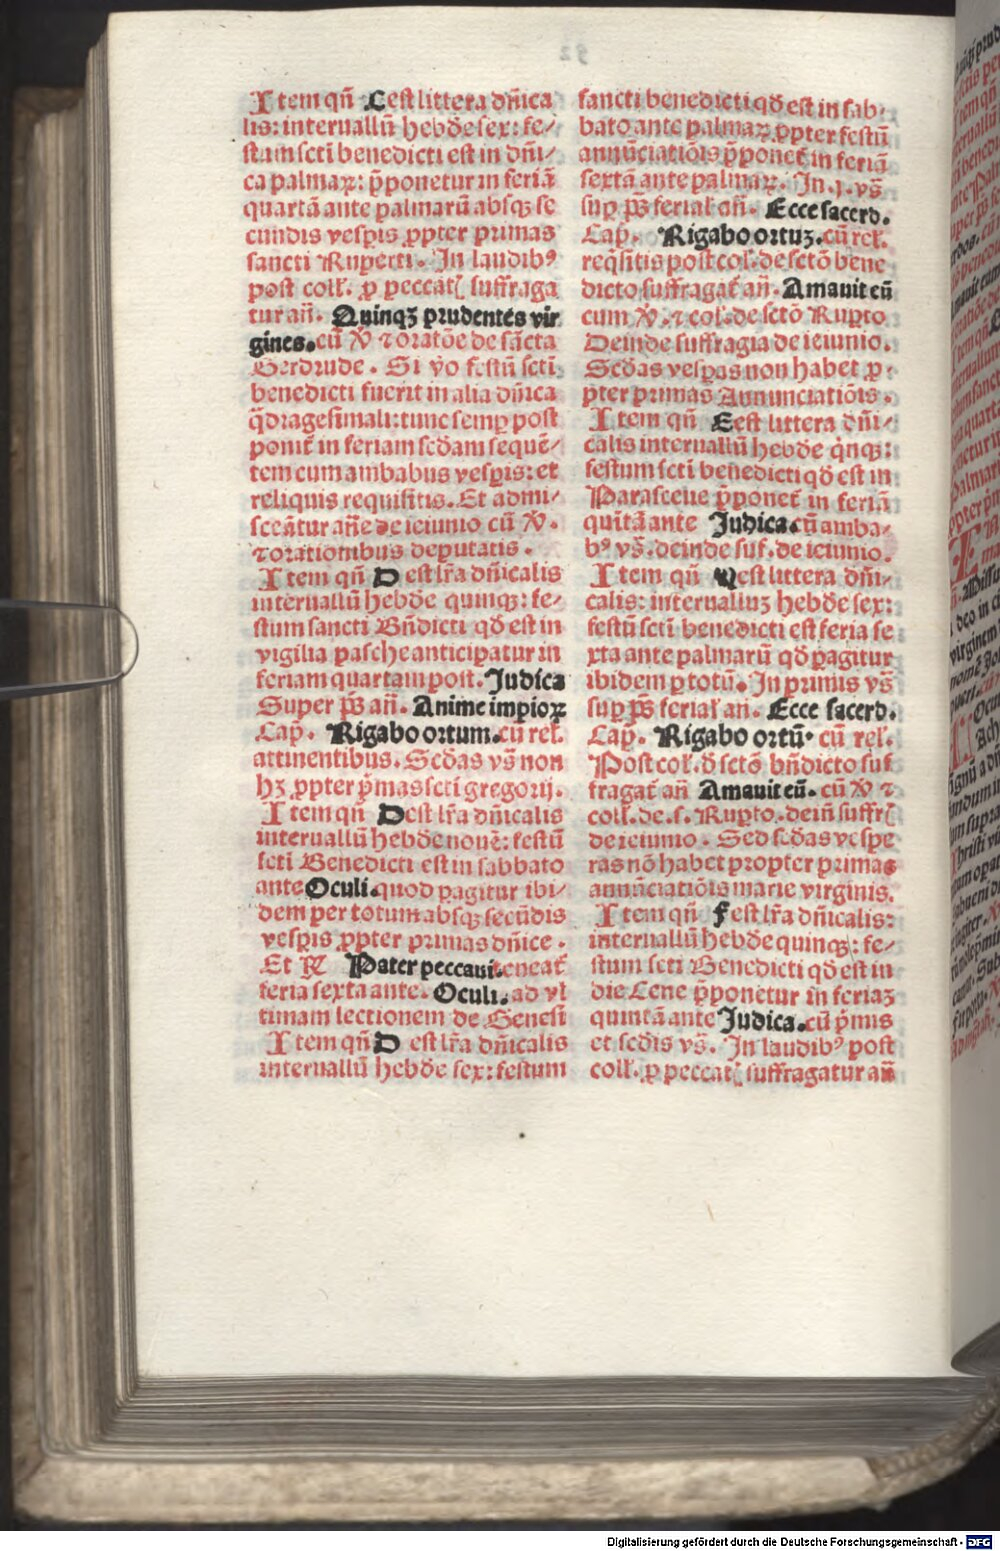 Item qn̄ C est littera dn̄ica
lis: interuallū hebde sex: fe/
stum scti benedicti est in dn̄i/
ca palmaꝝ: p̄ponetur in feriā
quartā ante palmarū absqꝫ se
cundis vesꝑis ꝓpter primas
sancti Ruperti. In laudibꝰ
post coll. ꝓ peccat̄ suffraga
tur an̄. Quinqꝫ prudentes vir
gines. cū V̄ ⁊ oratōe de sācta
Gerdrude. Si v̄o festū scti
benedicti fuerit in alia dn̄ica
q̄dragesimali: tunc semꝑ post
ponit̄ in feriam scd̄am sequē/
tem cum ambabus vesꝑis: et
reliquis requisitis. Et admi/
sceātur an̄e de ieiunio cū V̄.
⁊ orationibus deputatis.
Item qn̄ D est lr̄a dn̄icalis
interuallū hebde quinqꝫ: fe/
stum sancti Bn̄dicti qd̄ est in
vigilia pasche anticipatur in
feriam quartam post. Judica
Super p̄s an̄. Anime impioꝝ
Cap̄. Rigabo ortum. cū rel̄.
attinentibus. Scd̄as vs̄ non
hꝫ ꝓpter p̄mas scti gregorij.
Item qn̄ D est lr̄a dn̄icalis
interuallū hebde nouē: festū
scti Benedicti est in sabbato
ante Oculi. quod pagitur ibi/
dem per totum absqꝫ secūdis
vesꝑis ꝓpter primas dn̄ice.
Et R̄ Pater peccaui. teneat̄
feria sexta ante. Oculi. ad vl
timam lectionem de Genesi
Item qn̄ D est lr̄a dn̄icalis
interuallū hebde sex: festum
sancti benedicti qd̄ est in sab/
bato ante palmaꝝ ꝓpter festū
annūciatiōis p̄ponet̄ in feriā
sextā ante palmaꝝ. In .j. vs̄
suꝑ p̄s ferial̄ an̄. Ecce sacerd.
Cap̄. Rigabo ortuꝫ. cū rel̄.
reqͥsitis post col̄. de sctō bene
dicto suffragat̄ an̄. Amauit eū
cum V̄. ⁊ col̄. de sctō Ruꝑto
Deinde suffragia de ieiunio.
Scd̄as vesꝑas non habet ꝓ/
pter primas Annunciatiōis.
Item qn̄ E est littera dn̄i/
calis interuallū hebde qͥnqꝫ:
festum scti benedicti qd̄ est in
Parasceue p̄ponet̄ in feriā
quītā ante Judica. cū amba/
bꝰ vs̄. deinde suf. de ieiunio.
Item qn̄ E est littera dn̄i/
calis: interualluꝫ hebde sex:
festū scti benedicti est feria se
xta ante palmarū qd̄ ꝑagitur
ibidem ꝑ totū. In primis vs̄
suꝑ p̄s ferial̄ an̄. Ecce sacerd.
Cap̄. Rigabo ortū. cū rel̄.
Post col̄. d̄ sctō bn̄dicto suf
fragat̄ an̄ Amauit eū. cū V̄ ⁊
coll̄. de. s. Ruꝑto. dein̄ suffr̄
de ieiunio. Sed scd̄as vespe
ras nō habet propter primas
annūciatiōis marie virginis.
Item qn̄ F est lr̄a dn̄icalis:
interuallū hebde quinqꝫ: fe/
stum scti Benedicti qd̄ est in
die Cene p̄ponetur in feriaꝫ
quintā ante Judica. cū p̄mis
et scd̄is vs̄. In laudibꝰ post
coll̄. ꝓ peccat̄ suffragatur an̄
Digitalisierung gefördert durch die Deutsche Forschungsgemeinschaft - DFG